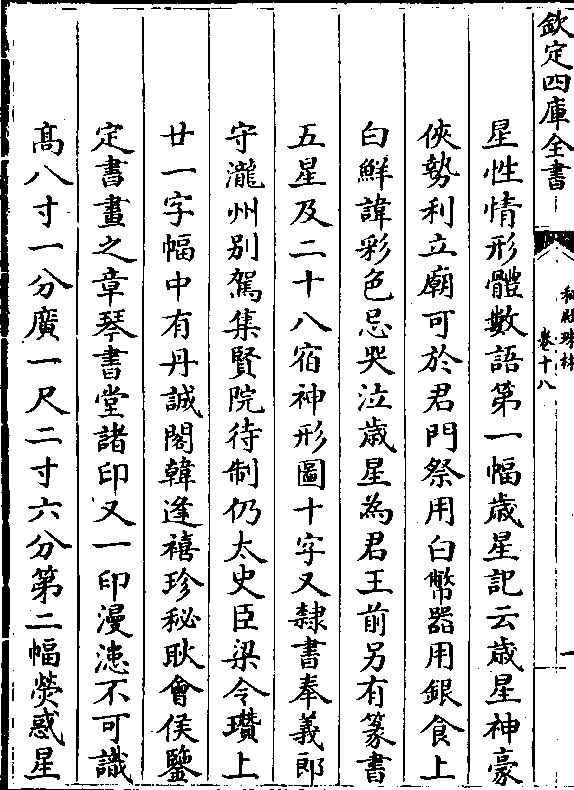 欽定四庫全書
秘殿珠林
卷十八
星性情形體數語第一幅歲星記云歲星神豪
俠勢利立廟可於君門祭用白幣器用銀食上
白鮮諱彩色忌哭泣歲星為君王前另有篆書
五星及二十八宿神形圖十字又隸書奉義郎
守瀧州别駕集賢院待制仍太史臣梁令瓚上
廿一字幅中有丹誠閣韓逢禧珍秘耿會侯鑒
定書畫之章琴書堂諸印又一印漫漶不可識
髙八寸一分廣一尺二寸六分第二幅熒惑星